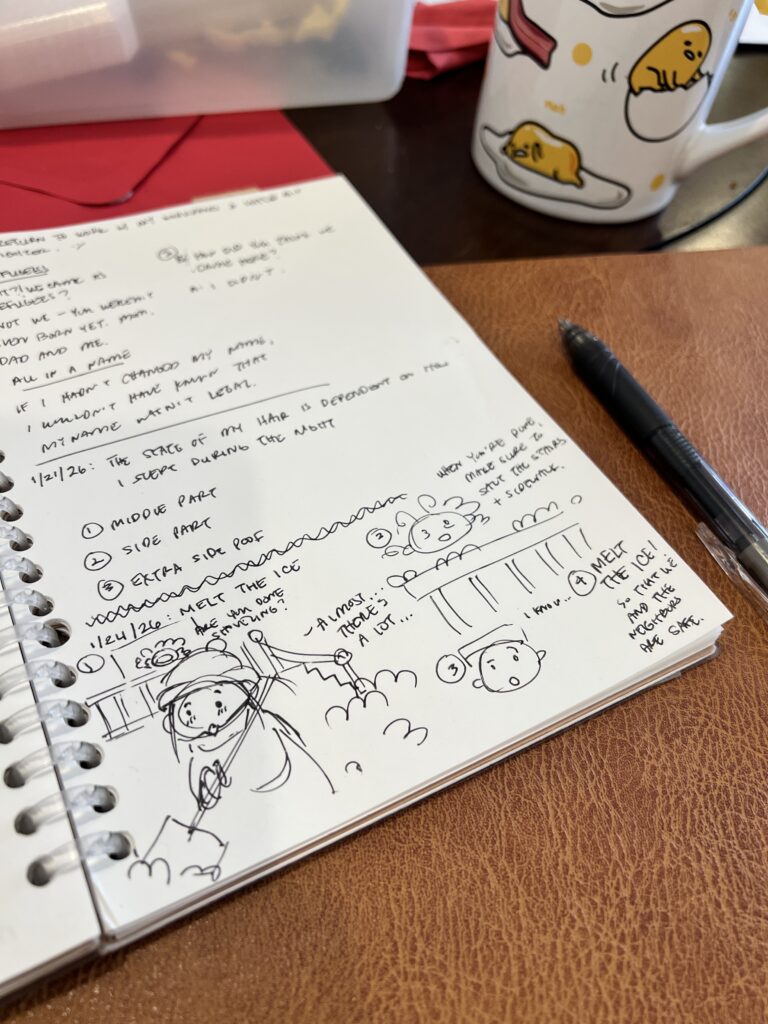 RETURN TO WORK
REFUGEES
② HOW DID YOU THINK WE
CAME HERE?
WE CAME AS
REFUGEES?
A: I DIDN'T.
NOT WE – YOU WEREN'T
EVEN BORN YET. MOM,
DAD AND ME.
ALL IN A NAME
IF I HADN'T CHANGED MY NAME,
I WOULDN'T HAVE KNOWN THAT
MY NAME WASN'T LEGAL.
1/21/26: THE STATE OF MY HAIR IS DEPENDENT ON HOW
I SLEPT DURING THE NIGHT
① MIDDLE PART
② SIDE PART
③ EXTRA SIDE POOF
1/24/26: MELT THE ICE
①
ARE YOU DONE
SHOVELING?
– ALMOST...
THERE'S
A LOT...
②
WHEN YOU'RE DONE,
MAKE SURE TO
SALT THE STAIRS
+ SIDEWALK.
③
I KNOW...
④ MELT
THE ICE!
SO THAT WE
AND THE
NEIGHBORS
ARE SAFE.